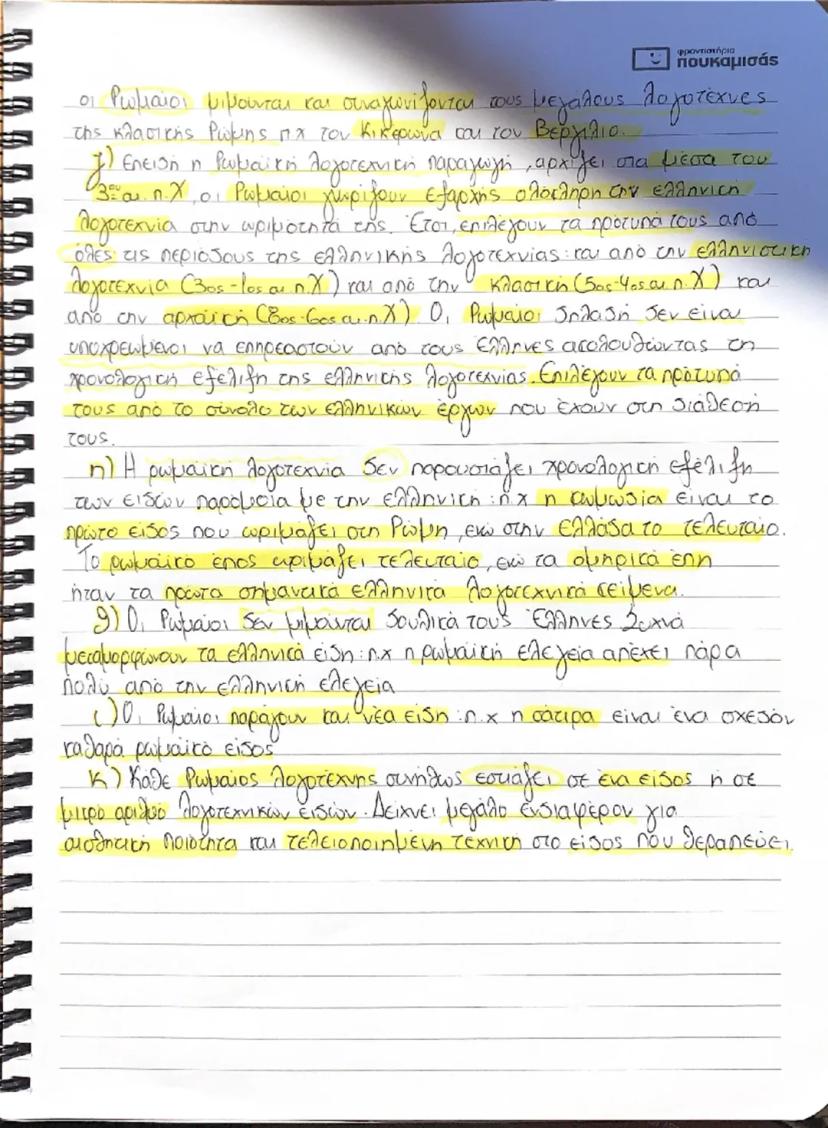 φροντιστήρια
πουκαμισάς
οι Ρωμαίοι μιμούνται και συναγωνίζονται τους μεγάλους λογοτέχνες
της κλασικής Ρώμης π.χ τον Κικέρωνα και τον Βεργίλιο.
ζ) Επειδή η Ρωμαϊκή λογοτεχνική παραγωγή, αρχίζει στα μέσα του
3ου αι. π.Χ, οι Ρωμαίοι γνωρίζουν εξαρχής ολόκληρη την ελληνική
λογοτεχνία στην ωριμότητά της. Έτσι, επιλέγουν τα πρότυπά τους από
όλες τις περιόδους της ελληνικής λογοτεχνίας: και από την ελληνιστική
λογοτεχνία (3ος-1ος αι. π.Χ) και από την κλασική (5ος-4ος αι. π.Χ) και
από την αρχαϊκή (8ος-6ος αι. π.Χ) Οι Ρωμαίοι δηλαδή δεν είναι
υποχρεωμένοι να επηρεαστούν από τους Έλληνες ακολουθώντας τη
χρονολογική εξέλιξη της ελληνικής λογοτεχνίας. Επιλέγουν τα πρότυπά
τους από το σύνολο των ελληνικών έργων που έχουν στη διάθεσή
τους.
η) Η ρωμαϊκή λογοτεχνία δεν παρουσιάζει χρονολογική εξέλιξη
των ειδών παρόμοια με την ελληνική: π.χ η κωμωδία είναι το
πρώτο είδος που ωριμάζει στη Ρώμη, ενώ στην Ελλάδα το τελευταίο.
Το ρωμαϊκό έπος ωριμάζει τελευταίο, ενώ τα ομηρικά έπη
ήταν τα πρώτα σημαντικά ελληνικά λογοτεχνικά κείμενα.
θ) Οι Ρωμαίοι δεν μιμούνται δουλικά τους Έλληνες Συχνά
μεταμορφώνουν τα ελληνικά είδη: π.χ η ρωμαϊκή ελεγεία απέχει πάρα
πολύ από την ελληνική ελεγεία
ι) Οι Ρωμαίοι παράγουν και νέα είδη: π.χ η σάτιρα είναι ένα σχεδόν
καθαρά ρωμαϊκό είδος
κ) Κάθε Ρωμαίος λογοτέχνης συνήθως εστιάζει σε ένα είδος ή σε
μικρό αριθμό λογοτεχνικών ειδών. Δείχνει μεγάλο ενδιαφέρον για
αισθητική ποιότητα και τελειοποιημένη τεχνική στο είδος που θεραπεύει.